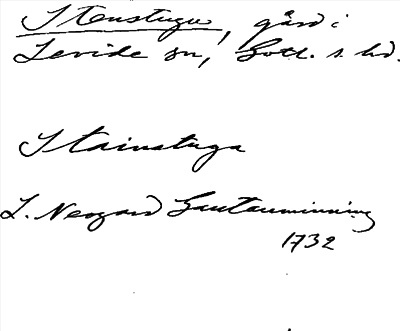 Stenstugu, gård i
Levide sn, Gotl. s. hd.
Stainstuga
L. Neogard Gautauminning
1732